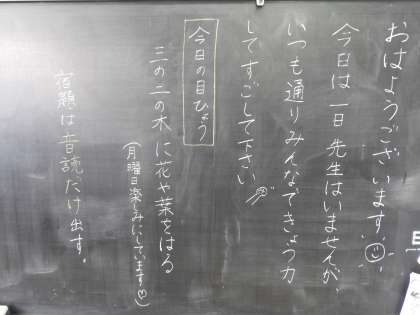 おはようございます
今日は一日先生はいませんが、
いつも通りみんなできょう力
してすごして下さい
今日の目ひょう
三の三の木に花や葉をはる
(月曜日楽しみにしています♡)
宿題は音読だけ出す。